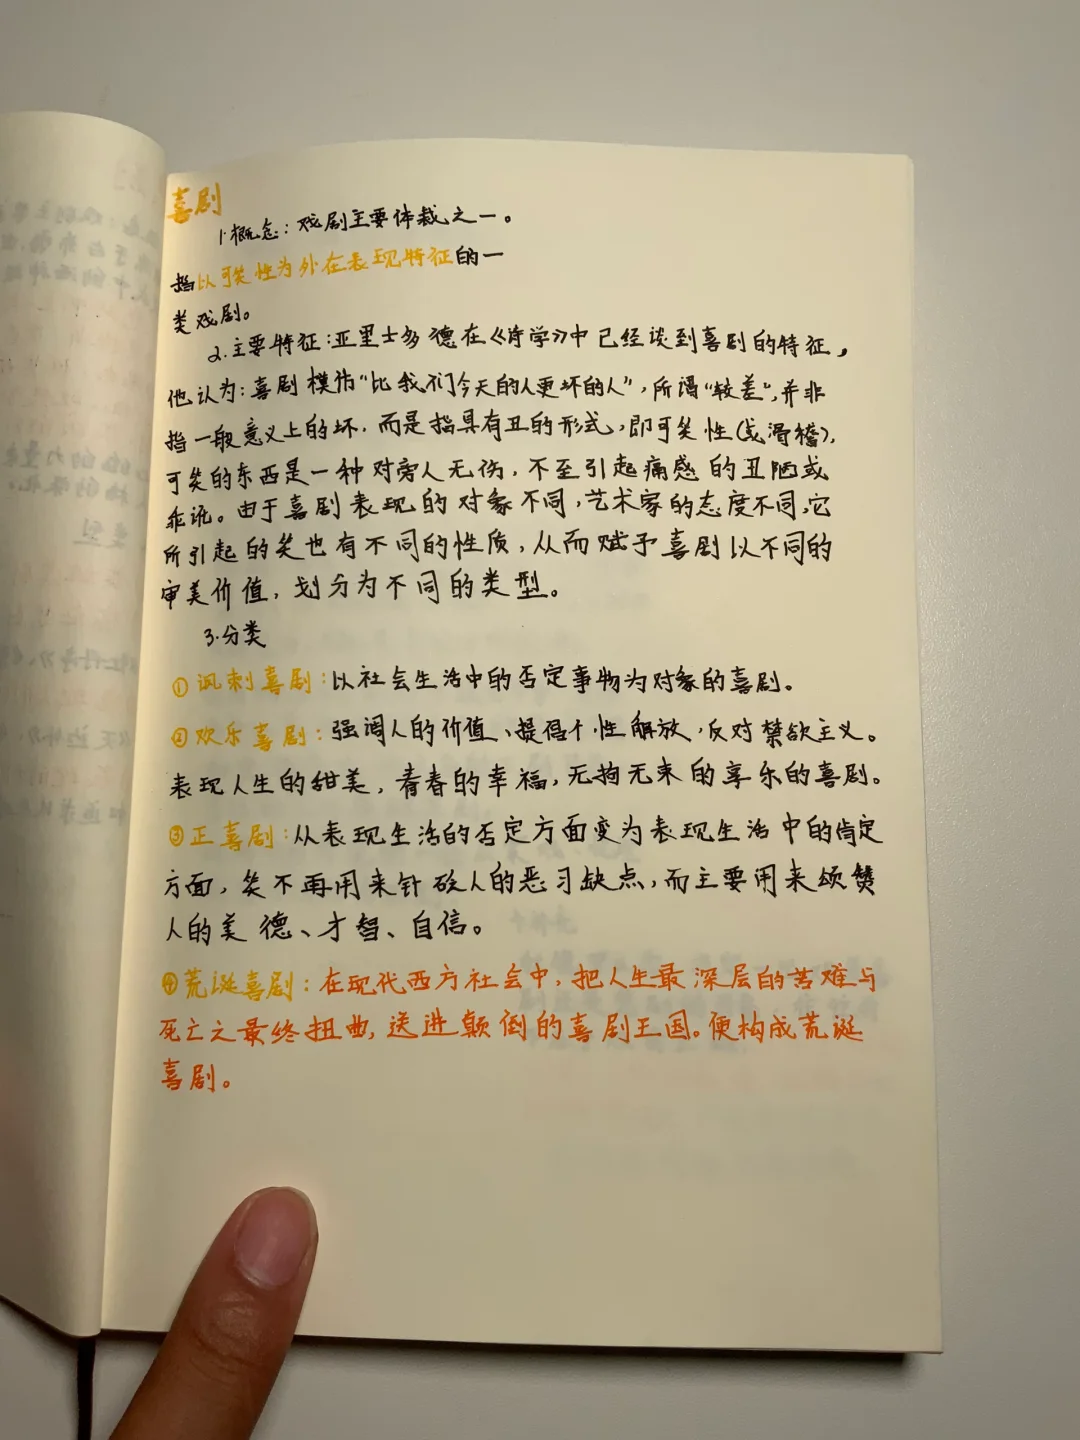 喜剧
1.概念：戏剧主要体裁之一。
指以可笑性为外在表现特征的一
类戏剧。
2.主要特征：亚里士多德在《诗学》中已经谈到喜剧的特征，
他认为：喜剧模仿“比我们今天的人更坏的人”，所谓“较差”，并非
指一般意义上的坏，而是指具有丑的形式，即可笑性（或滑稽），
可笑的东西是一种对旁人无伤，不至引起痛感的丑陋或
乖讹。由于喜剧表现的对象不同，艺术家的态度不同，它
所引起的笑也有不同的性质，从而赋予喜剧以不同的
审美价值，划分为不同的类型。
3.分类
①讽刺喜剧：以社会生活中的否定事物为对象的喜剧。
②欢乐喜剧：强调人的价值、提倡个性解放，反对禁欲主义。
表现人生的甜美，青春的幸福，无拘无束的享乐的喜剧。
③正喜剧：从表现生活的否定方面变为表现生活中的肯定
方面，笑不再用来针砭人的恶习缺点，而主要用来颂赞
人的美德、才智、自信。
④荒诞喜剧：在现代西方社会中，把人生最深层的苦难与
死亡之最终扭曲，送进颠倒的喜剧王国。便构成荒诞
喜剧。